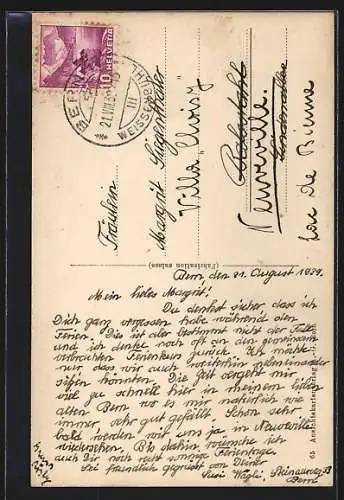 HELVETIA
10
BERN
III
WEISSENBÜHL
Fräulein
Margrit Siegenthaler
Villa "Choisy"
Neuveville.
Lac de Bienne
Bern den 21. August 1939.
Mein liebes Margrit!
Du denkst sicher, dass ich
Dich ganz vergessen habe während den
Ferien. Dies ist aber bestimmt nicht der Fall
und ich denke noch oft an den gemeinsam
verbrachten Ferienkurs zurück. Ich möchte
nur, dass wir auch weiterhin nebeneinander
sitzen könnten. Die Zeit vergeht mir
viel zu schnell hier in meinem lieben
alten Bern wo es mir natürlich wie
immer, sehr gut gefällt. Schon sehr
bald werden wir uns ja in Neuveville
wiedersehen. Bis dahin wünsche ich
auch Dir noch recht sonnige Ferientage.
Sei freundlich gegrüsst von Deiner
Susi
Bern